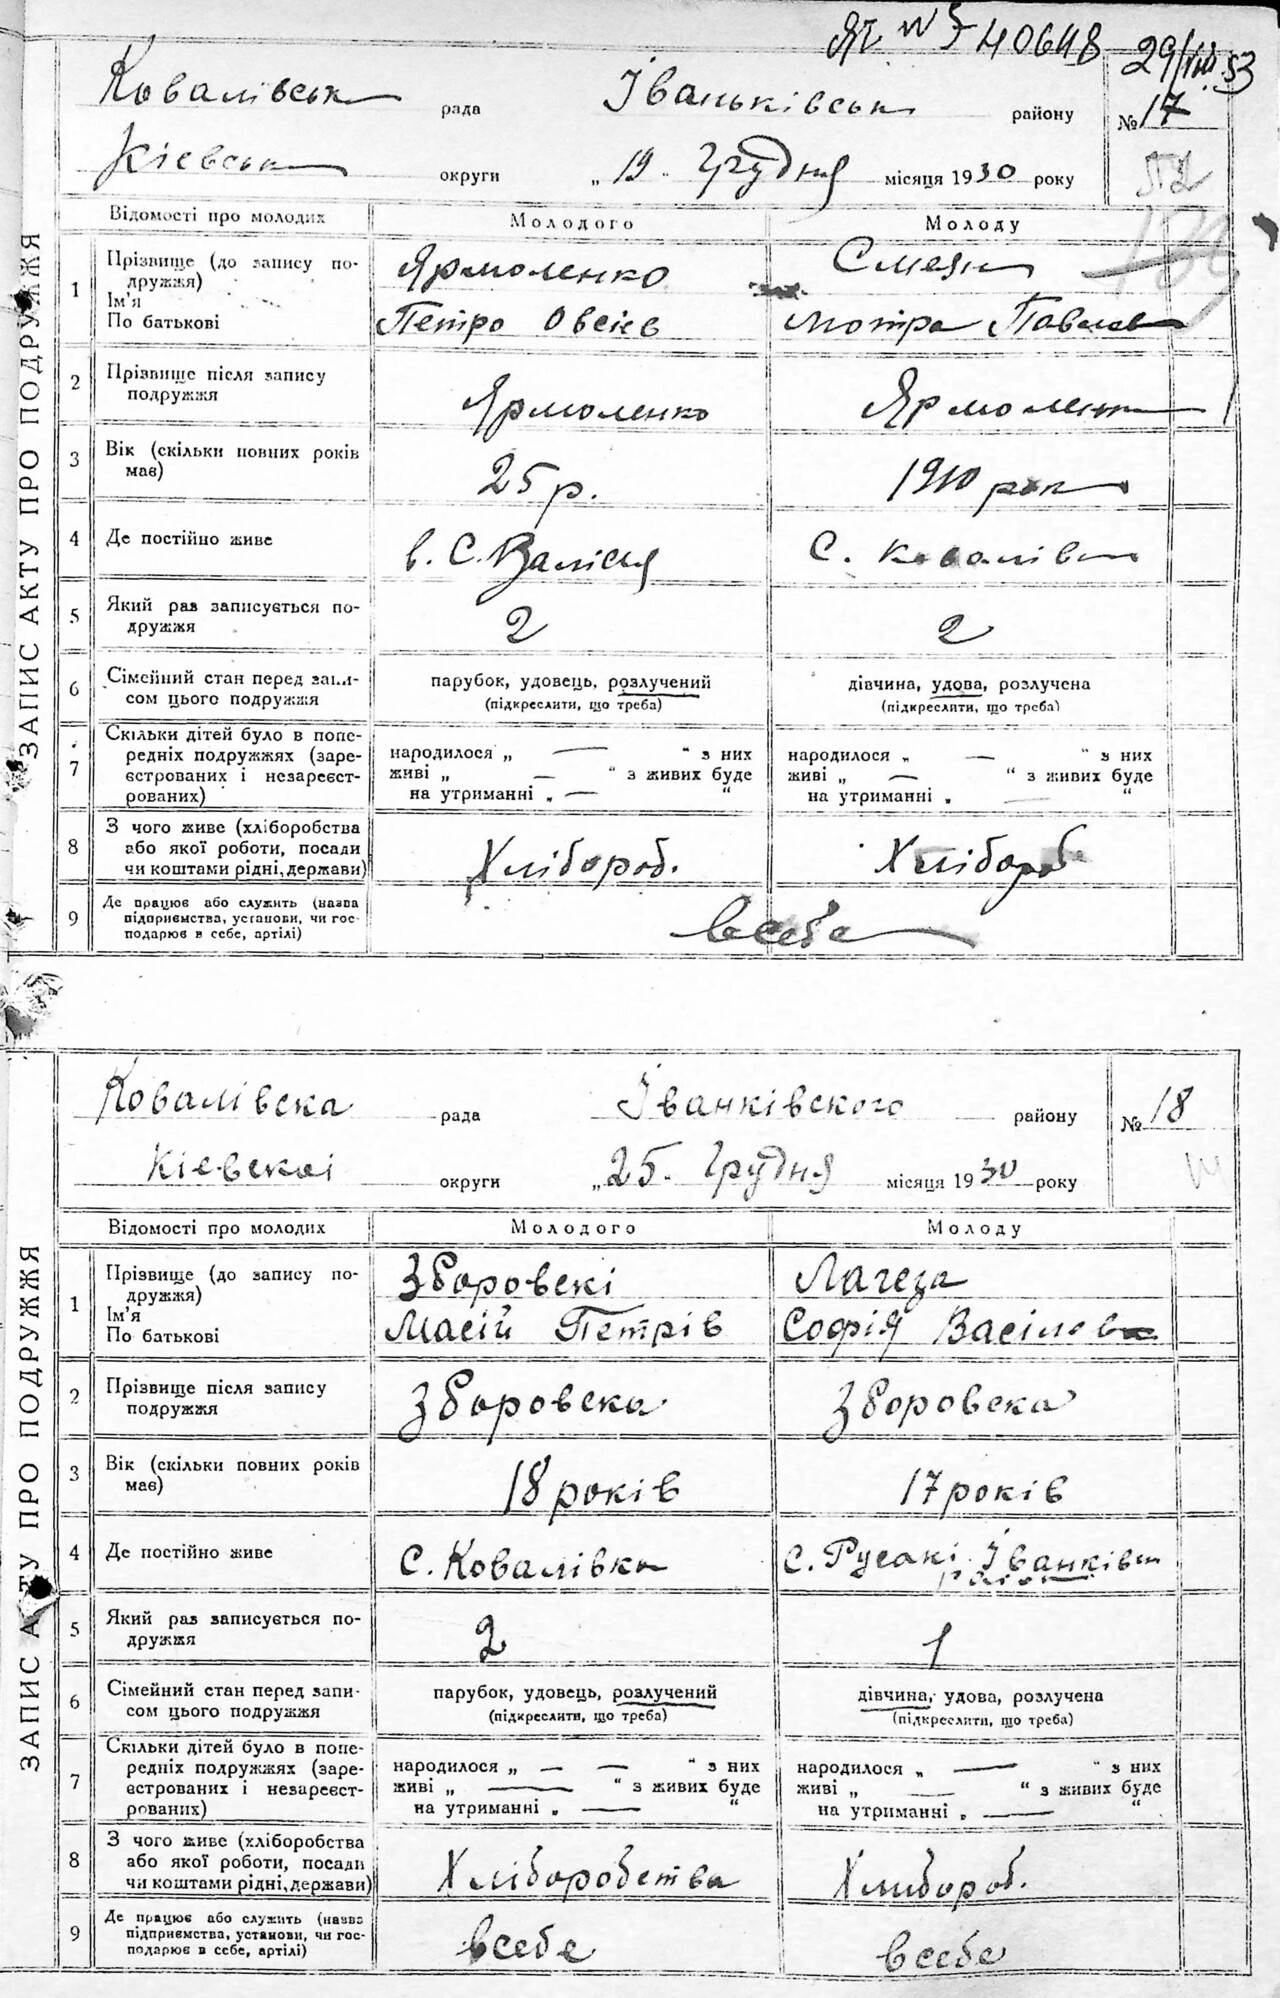 ЯЧ № 40648 29/VIII 53
Ковалівськ рада Іваньківськ району № 17
Кіевськ округи „ 19 „ Грудня місяця 1930 року
ЗАПИС АКТУ ПРО ПОДРУЖЖЯ
Відомості про молодих Молодого Молоду
1 Прізвище (до запису по-
дружжя) Ярмоленко
Ім'я
По батькові Петро Овсієв Мотря Павлов
2 Прізвище після запису
подружжя Ярмоленко Ярмоленк
3 Вік (скільки повних років
має) 25 р. 1910 рок
4 Де постійно живе в. С. С. Ковалівк
5 Який раз записується по-
дружжя 2 2
6 Сімейний стан перед запи-
сом цього подружжя парубок, удовець, розлучений дівчина, удова, розлучена
(підкреслити, що треба) (підкреслити, що треба)
7 Скільки дітей було в попе-
редніх подружжях (заре-
єстрованих і незареєст-
рованих) народилося „ — “ з них народилося „ — “ з них
живі „ — “ з живих буде живі „ — “ з живих буде
на утриманні „ — “ на утриманні „ — “
8 З чого живе (хліборобства
або якої роботи, посади
чи коштами рідні, держави) Хлібороб. Хлібороб
9 Де працює або служить (назва
підприємства, установи, чи гос-
подарює в себе, артілі) всебе
Ковалівска рада Іванківского району № 18
Кіевскоі округи „ 25 „ Грудня місяця 1930 року
ЗАПИС АКТУ ПРО ПОДРУЖЖЯ
Відомості про молодих Молодого Молоду
1 Прізвище (до запису по-
дружжя) Зборовскі Лагеза
Ім'я
По батькові Масій Петрів Софія Васілев
2 Прізвище після запису
подружжя Зборовска Зборовска
3 Вік (скільки повних років
має) 18 років 17 років
4 Де постійно живе С. Ковалівка С. Русакі Іванківск
район
5 Який раз записується по-
дружжя 2 1
6 Сімейний стан перед запи-
сом цього подружжя парубок, удовець, розлучений дівчина, удова, розлучена
(підкреслити, що треба) (підкреслити, що треба)
7 Скільки дітей було в попе-
редніх подружжях (заре-
єстрованих і незареєст-
рованих) народилося „ — — “ з них народилося „ — “ з них
живі „ — “ з живих буде живі „ — “ з живих буде
на утриманні „ — “ на утриманні „ — “
8 З чого живе (хліборобства
або якої роботи, посади
чи коштами рідні, держави) Хліборобства Хлибороб.
9 Де працює або служить (назва
підприємства, установи, чи гос-
подарює в себе, артілі) всебе всебе